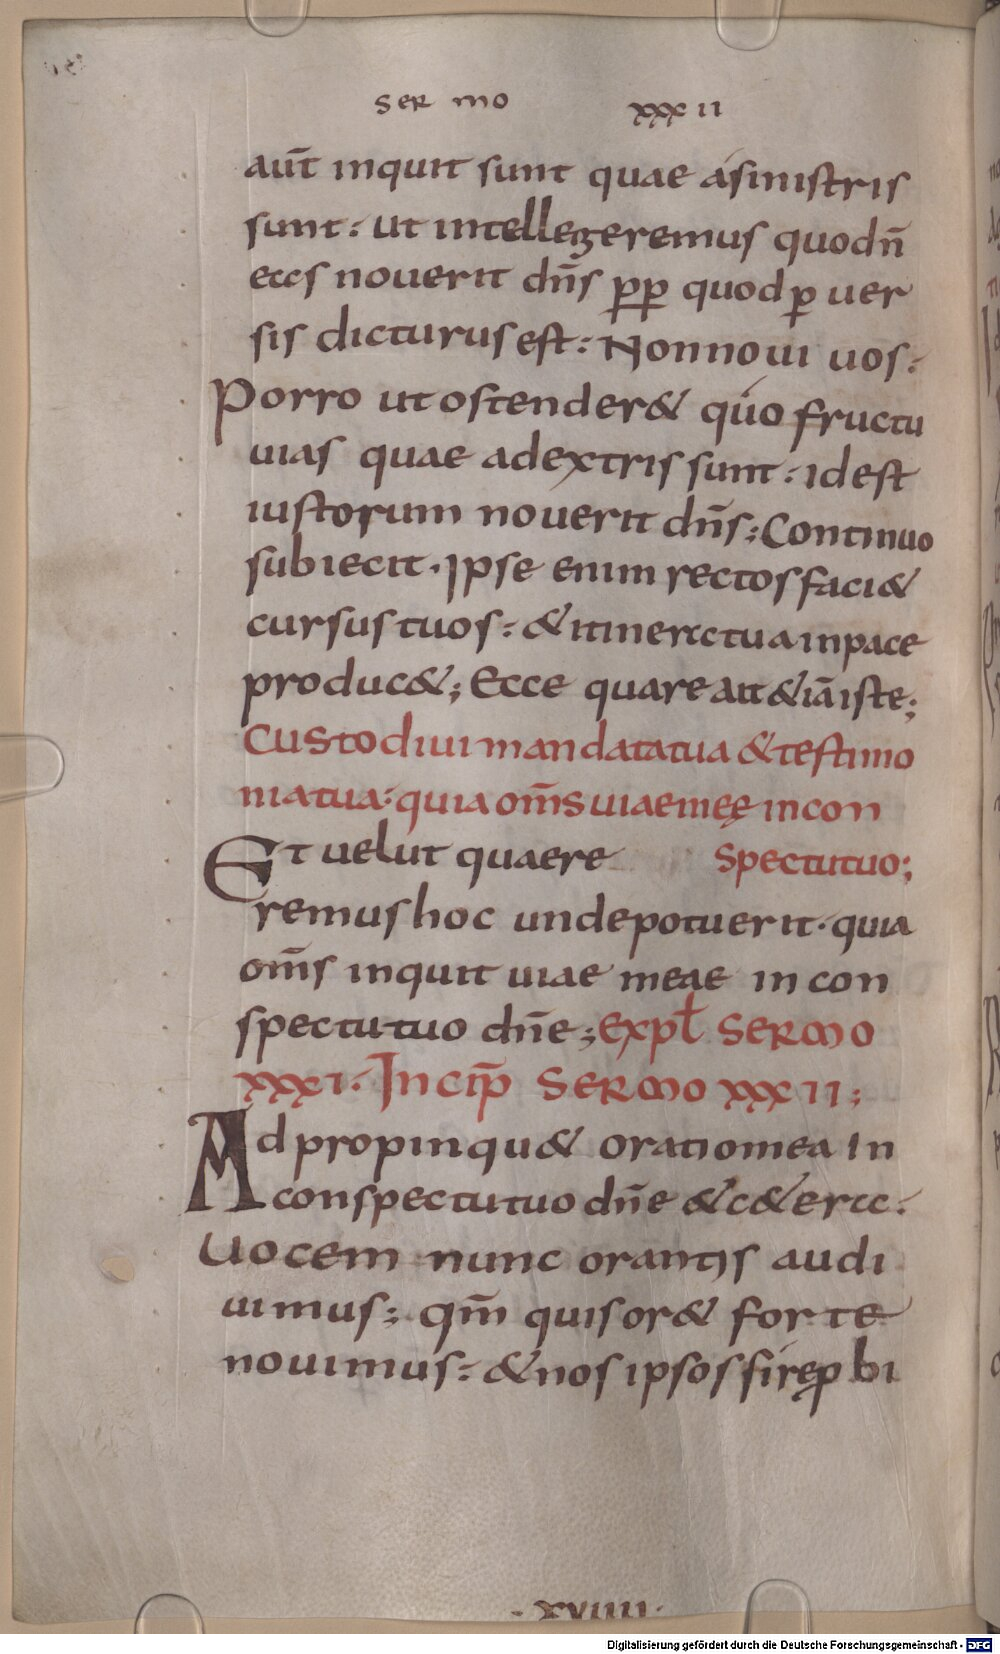 sermo xxxii
aut̄ inquit sunt quae asinistris
sunt: ut intellegeremus quodn̄
eas nouerit dn̄s ꝓꝑ quodꝑuer
sis dicturus est: Non noui uos:
Porro ut ostender& quo fructu
uias quae adextris sunt: idest
iustorum nouerit dn̄s; Continuo
subiecit. Ipse enim rectos faci&
cursus tuos: & itinera tua inpace
produc&; Ecce quare att& iā iste;
Custodiui mandata tua & testimo
nia tua: quia om̄s uiae meę incon
Et uelut quaere spectu tuo;
remus hoc unde potuerit. quia
om̄s inquit uiae meae in con
spectu tuo dn̄e; Expł sermo
xxxi. Incip̄ sermo xxxii;
Adpropinqu& oratio mea In
conspectu tuo dn̄e & c&era:
Uocem nunc orantis audi
uimus; qm̄ quis or& forte
nouimus: & nos ipsos si reꝓbi
.xviiii.
Digitalisierung gefördert durch die Deutsche Forschungsgemeinschaft - DFG